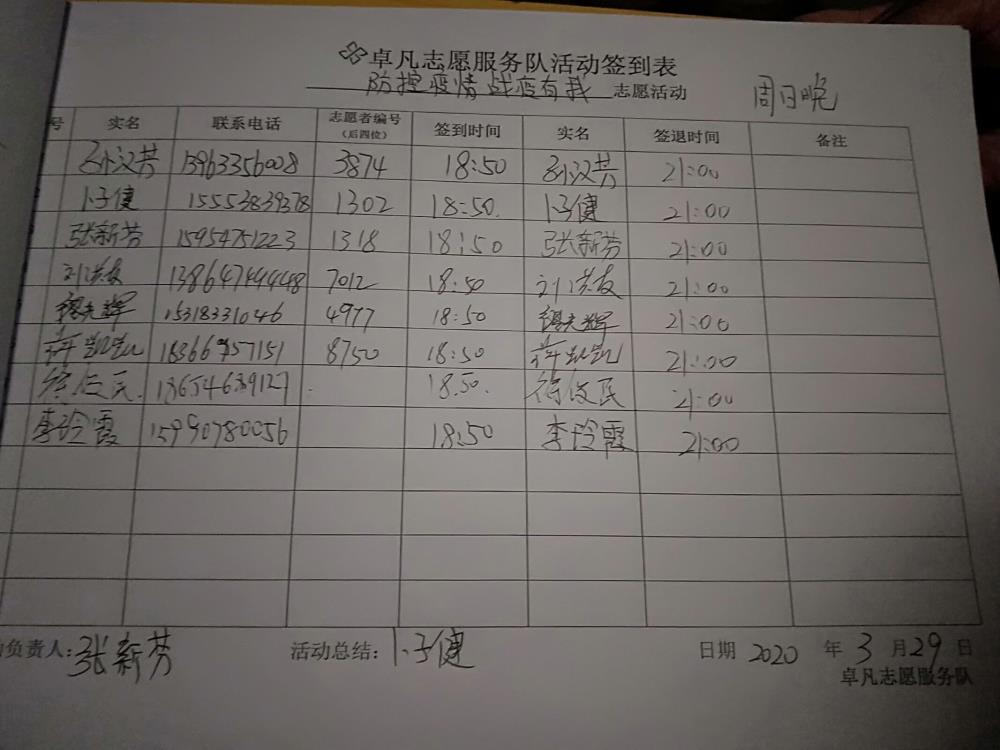 卓凡志愿服务队活动签到表
防控疫情 战疫有我 志愿活动 周日晚
号 实名 联系电话 志愿者编号（后四位） 签到时间 实名 签退时间 备注
孙汉芳 13963356008 3874 18:50 孙汉芳 21:00
卜子健 15553839378 1302 18:50 卜子健 21:00
张新芳 15954751223 1318 18:50 张新芳 21:00
刘洪友 13864744448 7012 18:50 刘洪友 21:00
15318331046 4977 18:50 21:00
蒋凯凯 18366957151 8750 18:50 蒋凯凯 21:00
徐俊民 18654689127 18:50 徐俊民 21:00
李玲霞 15990780056 18:50 李玲霞 21:00
负责人: 张新芳 活动总结: 卜子健 日期 2020 年 3 月 29 日
卓凡志愿服务队